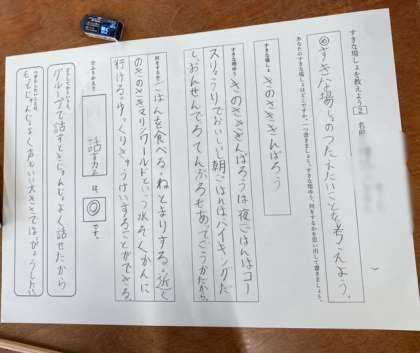 すきな場しょを教えよう 2
名前
あなたのすきな場しょはどこですか。一つ書きましょう。すきな場しょの理ゆう、何をするかを思い出して書きましょう。
め すきな場しょのつたえたいことを考えよう。
すきな場しょ
きのさきぎんぱろう
すきな理ゆう
きのさきぎんぱろうは夜ごはんはコー
スりょうりでおいしいし朝ごはんはバイキングだ
し、おんせんでろてんぶろもあってごうかだから。
何をするか
ごはんを食べる。ねとまりする。近く
のきのさきマリンワールドという水ぞくかんに
行ける。ゆっくりきゅうけいすることができる。
話す力
は、
◎
です。
グループで話すときじゅんじょよく話せたから
もっとじゅんじょよく声もいい大きさではなしたい